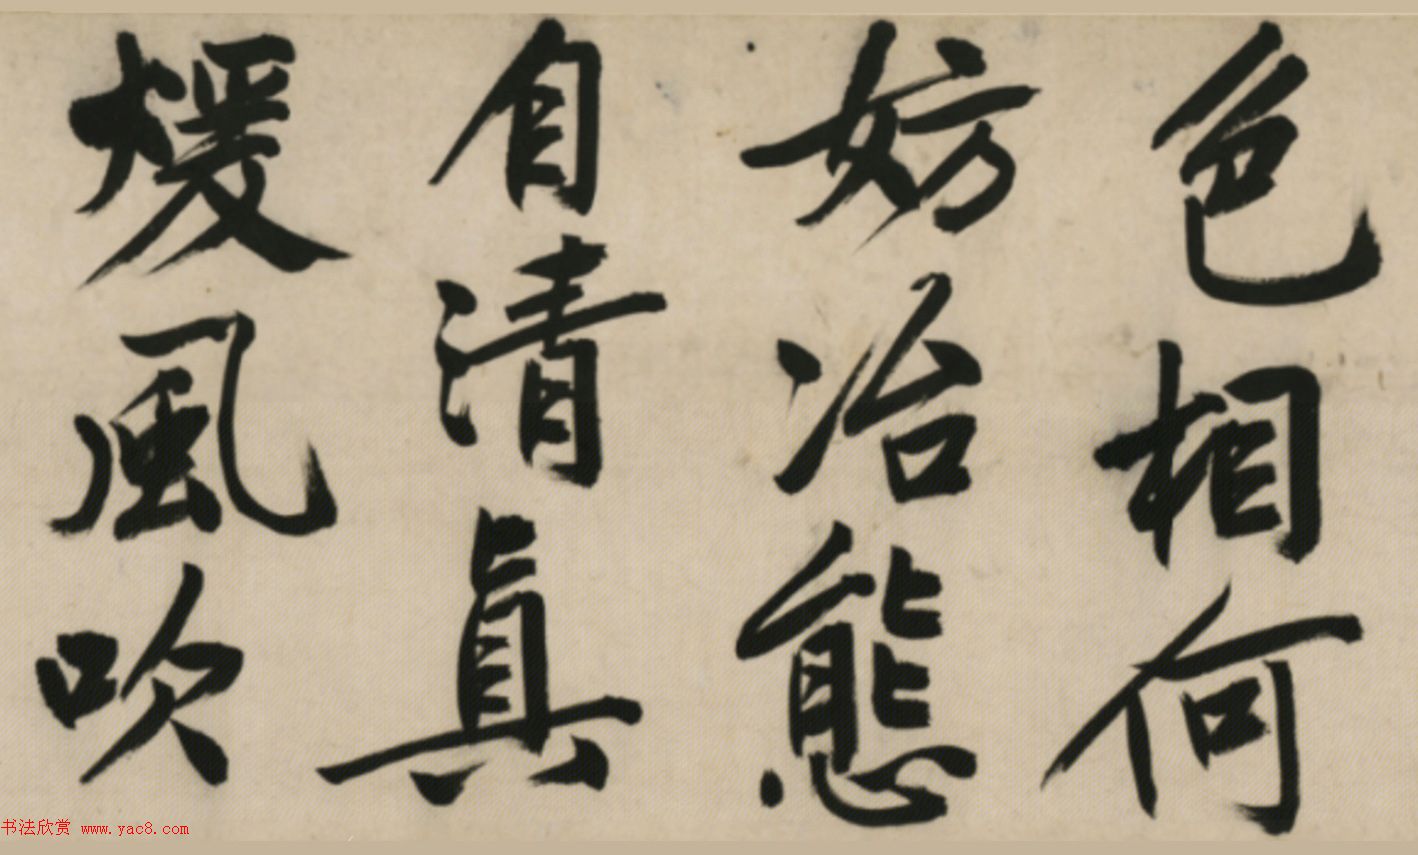 色相何
妨冶態
自清真
煖風吹
书法欣赏 www.yac8.com